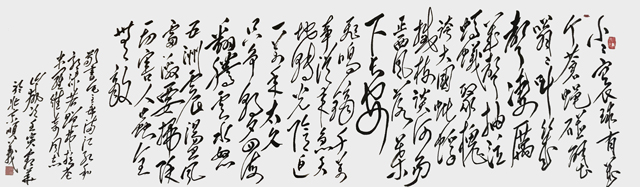 小小寰球有几
个苍蝇碰壁
嗡嗡叫几
声凄厉
几声抽泣
蚂蚁缘槐
夸大国蚍蜉
撼树谈何易
正西风落叶
下长安
飞鸣镝多少
事从来急天
地转光阴迫
一万年太久
只争朝夕四海
翻腾云水怒
五洲震荡风
雷激要扫除
一切害人虫全
无敌
敬书毛主席满江红和